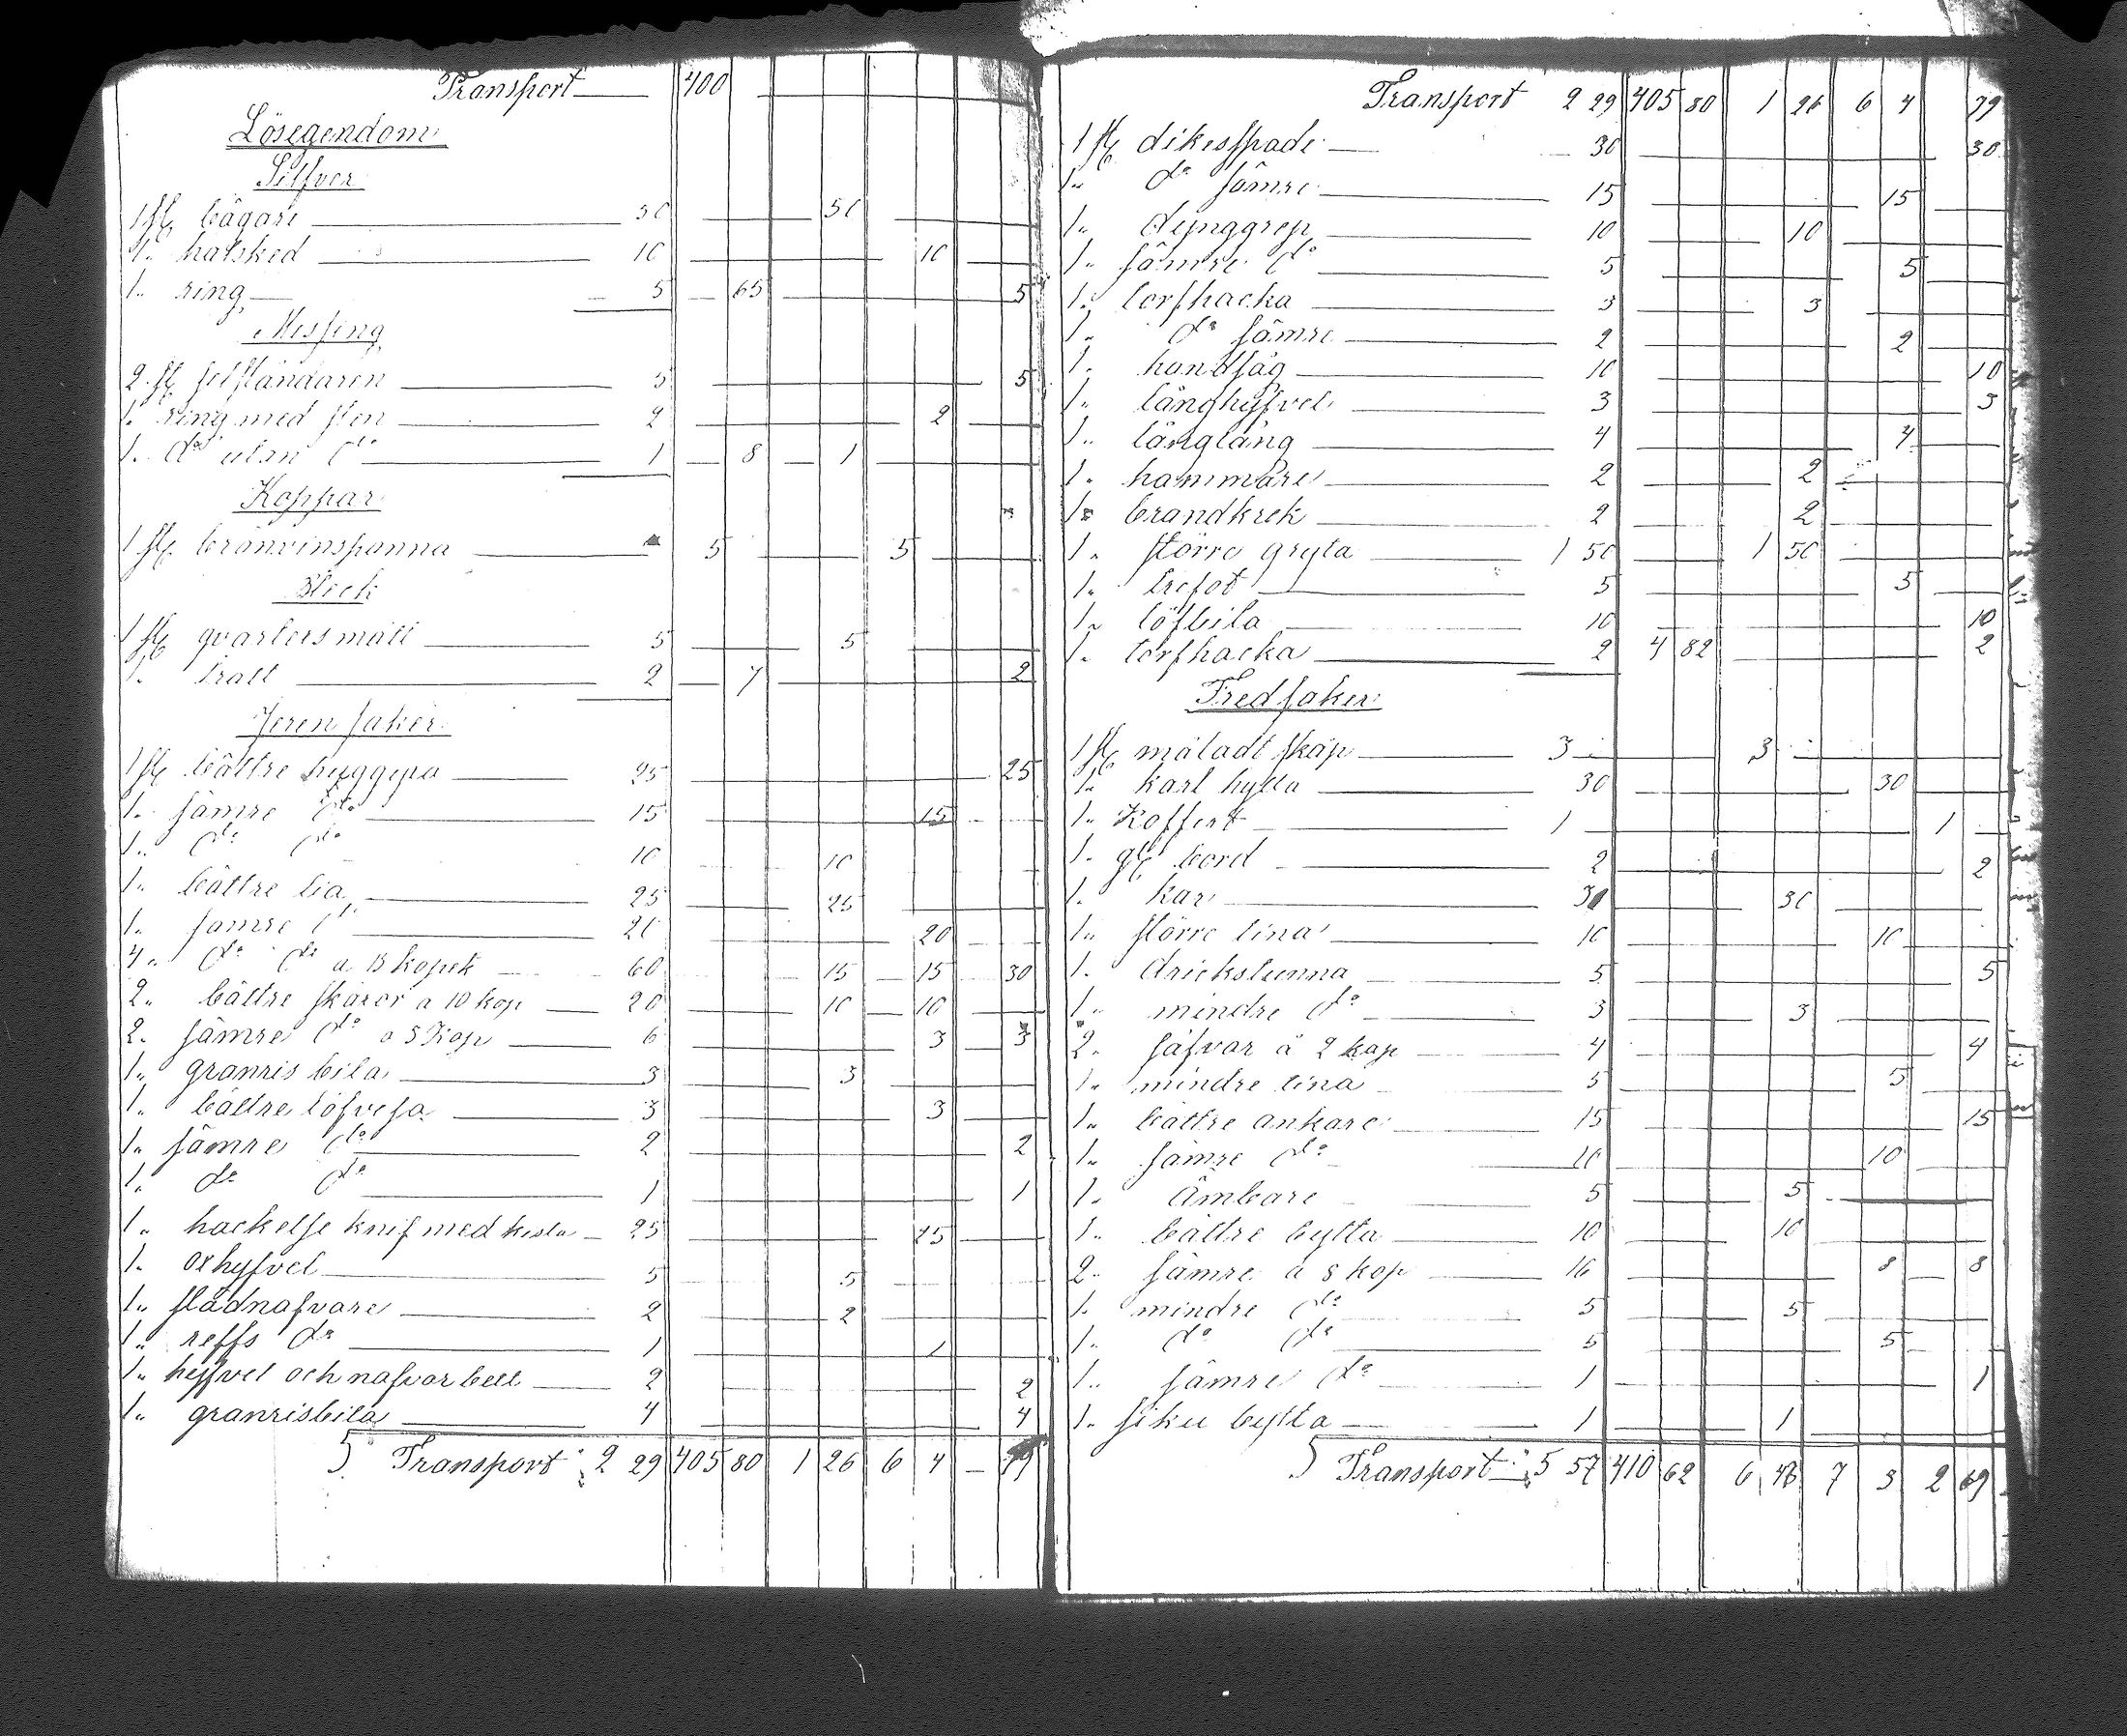 Transport 400
Lösegendom
Silfver
1 st bägare 50 50
1 " halsked 10 10
1 " ring 5 65 5
Messing
2 st
1 " ring med sten 2 2
1 " do utan do 1 8 1
Koppar
1 st brönvinspanna 5 5
Bleck
1 st qvarters mått 5 5
1 " tratt 2 7 2
Jeren saker
1 st bättre huggyxa 25 25
1 " sämre do 15 15
1 " do do 10 10
1 " bättre lia 25 25
1 " sämre do 20 20
4 " do do a 15 kopek 60 15 15 30
2 " bättre skäror a 10 kop 20 10 10
2 " sämre do a 3 Kop 6 3 3
1 " granris bila 3 3
1 " bättre löfvesa 3 3
1 " sämre do 2 2
1 " do do 1 1
1 " hackelse knif med kista 25 25
1 " oxhyfvel 5 5
1 " städnafvare 2 2
1 " reffs do 1 1
1 " hyfvel och nafvar bett 2 2
1 " granrisbila 4 4
Transport 2 29 405 80 1 26 6 4 79
Transport 2 29 405 80 1 26 6 4 79
1 st dikesspade 30 30
1 " do sämre 15 15
1 " dynggrep 10 10
1 " sämre do 5 5
1 " torfhacka 3 3
1 " do sämre 2 2
1 " handsåg 10 10
1 " långhyfvel 3 3
1 " långtång 4 4
1 " hammare 2 2
1 " brandkrok 2 2
1 " större gryta 1 50 1 50
1 " trefot 5 5
1 " löfbila 10 10
1 " torfhacka 2 4 82 2
Tredsaker
1 st måladt skåp 3 3
1 " karl hylla 30 30
1 " Koffert 1 1
1 " gl bord 2 2
1 " kar 30 30
1 " större tina 10 10
1 " drickstunna 5 5
1 " mindre do 3 3
2 " såfvar à 2 kop 4 4
1 " mindre tina 5 5
1 " bättre ankare 15 15
1 " sämre do 10 10
1 " ämbare 5 5
1 " bättre bytta 10 10
2 " sämre a 8 kop 16 8 8
1 " mindre do 5 5
1 " do do 5 5
1 " sämre do 1 1
1 " siku bytta 1 1
Transport 5 57 410 62 6 48 7 3 2 69